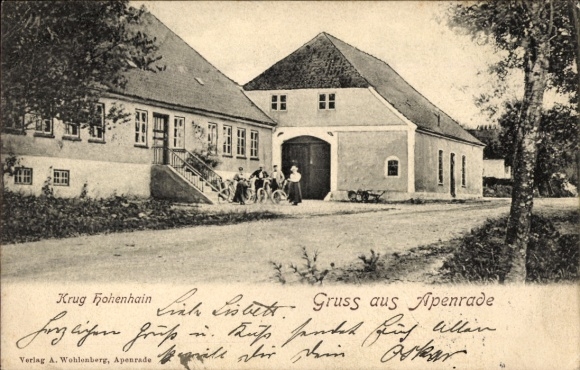 Krug Hohenhain
Gruss aus Apenrade
Liebe Lisbeth
Herzlichen Gruß u. Kuß sendet Euch Allen
speziell Dir Dein Oskar
Verlag A. Wohlenberg, Apenrade